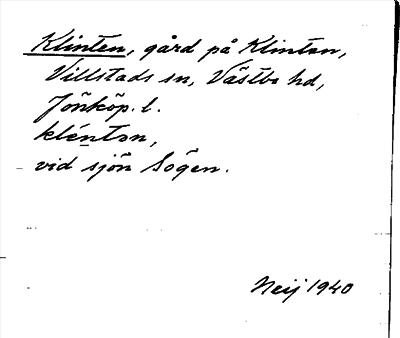 Klinten, gård på Klinten,
Villstads sn, Västbo hd,
Jönköp. l.
klénton,
vid sjön Sögen.
Neij 1940